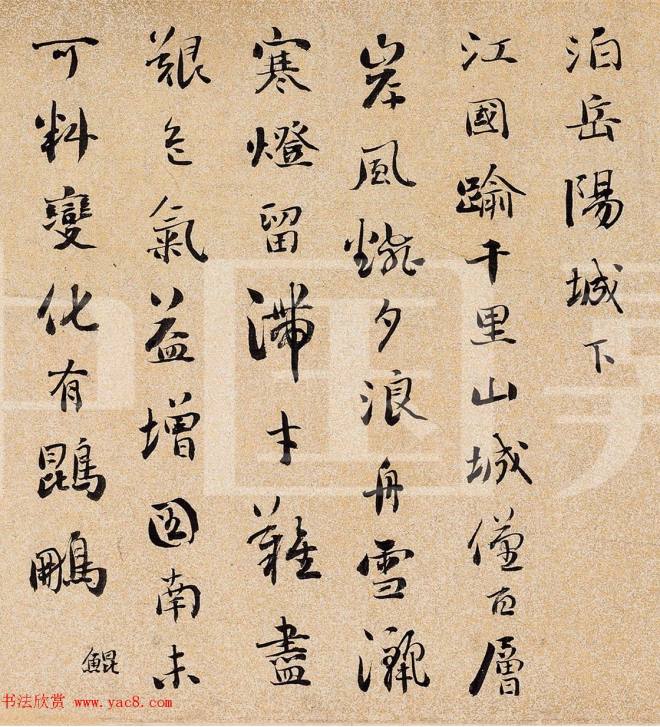 泊岳陽城下
江國踰千里山城僅百層
岸風飜夕浪舟雪灑
寒燈留滯才難盡
艱危氣益增圖南未
可料變化有鵾鵬
鯤
书法欣赏 www.yac8.com